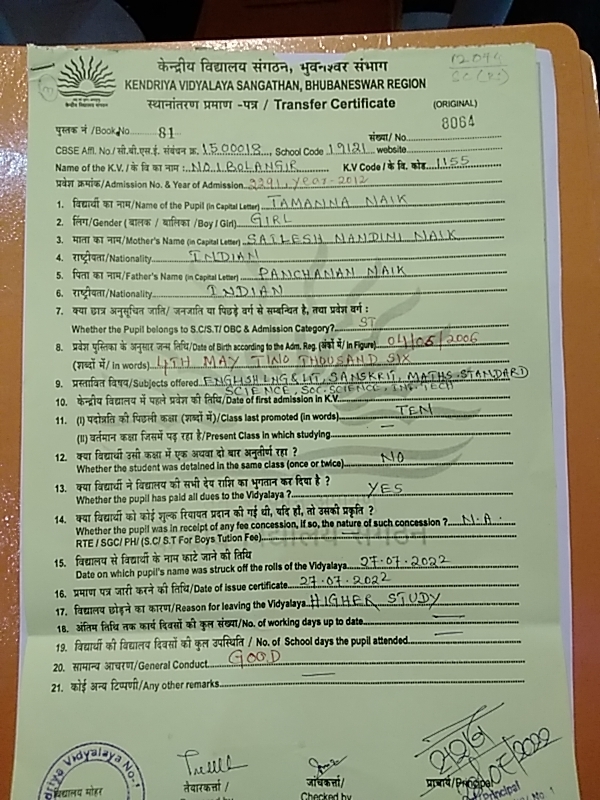 केन्द्रीय विद्यालय संगठन, भुवनेश्वर संभाग
KENDRIYA VIDYALAYA SANGATHAN, BHUBANESWAR REGION
स्थानांतरण प्रमाण -पत्र / Transfer Certificate
(ORIGINAL)
पुस्तक नं /Book No. 81 संख्या/ No. 8064
CBSE Affl. No./सी.बी.एस.ई. संबंधन क्र. 1500018, School Code 19121 website
Name of the K.V./ के वि का नाम : NO.1 BOLANGIR K.V Code/ के वि. कोड. 1155
प्रवेश क्रमांक/Admission No. & Year of Admission. 2291, Year-2012
1. विद्यार्थी का नाम/Name of the Pupil (in Capital Letter) TAMANNA NAIK
2. लिंग/Gender ( बालक / बालिका /Boy / Girl) GIRL
3. माता का नाम/Mother's Name (in Capital Letter) SAILESH NANDINI NAIK
4. राष्ट्रीयता/Nationality INDIAN
5. पिता का नाम/Father's Name (in Capital Letter) PANCHANAN NAIK
6. राष्ट्रीयता/Nationality INDIAN
7. क्या छात्र अनुसूचित जाति/ जनजाति या पिछड़े वर्ग से सम्बन्धित है, तथा प्रवेश वर्ग :
Whether the Pupil belongs to S.C/S.T/ OBC & Admission Category? ST
8. प्रवेश पुस्तिका के अनुसार जन्म तिथि/Date of Birth according to the Adm. Reg. (अंकों में/ in Figure) 04/05/2006
(शब्दों में/ in words) 4TH MAY TWO THOUSAND SIX
9. प्रस्तावित विषय/Subjects offered ENGLISH LNG & LIT, SANSKRIT, MATHS-STANDARD
SCIENCE, SOC-SCIENCE, INF-TECH
10. केन्द्रीय विद्यालय में पहले प्रवेश की तिथि/Date of first admission in K.V.
11. (I) पदोन्नति की पिछली कक्षा (शब्दों में)/Class last promoted (in words) TEN
(II) वर्तमान कक्षा जिसमें पढ़ रहा है/Present Class in which studying
12. क्या विद्यार्थी उसी कक्षा में एक अथवा दो बार अनुतीर्ण रहा ?
Whether the student was detained in the same class (once or twice) NO
13. क्या विद्यार्थी ने विद्यालय की सभी देय राशि का भुगतान कर दिया है ?
Whether the pupil has paid all dues to the Vidyalaya ? YES
14. क्या विद्यार्थी को कोई शुल्क रियायत प्रदान की गई थी, यदि हाँ, तो उसकी प्रकृति ?
Whether the pupil was in receipt of any fee concession, if so, the nature of such concession ? N.A.
RTE / SGC/ PH/ (S.C/ S.T For Boys Tution Fee)
15. विद्यालय से विद्यार्थी के नाम काटे जाने की तिथि
Date on which pupil's name was struck off the rolls of the Vidyalaya 27.07.2022
16. प्रमाण पत्र जारी करने की तिथि/Date of issue certificate 27.07.2022
17. विद्यालय छोड़ने का कारण/Reason for leaving the Vidyalaya HIGHER STUDY
18. अंतिम तिथि तक कार्य दिवसों की कुल संख्या/No. of working days up to date
19. विद्यार्थी की विद्यालय दिवसों की कुल उपस्थिति / No. of School days the pupil attended
20. सामान्य आचरण/General Conduct GOOD
21. कोई अन्य टिप्पणी/Any other remarks
विद्यालय मोहर तैयारकर्त्ता/ जांचकर्त्ता/ प्राचार्य/Principal
Checked by